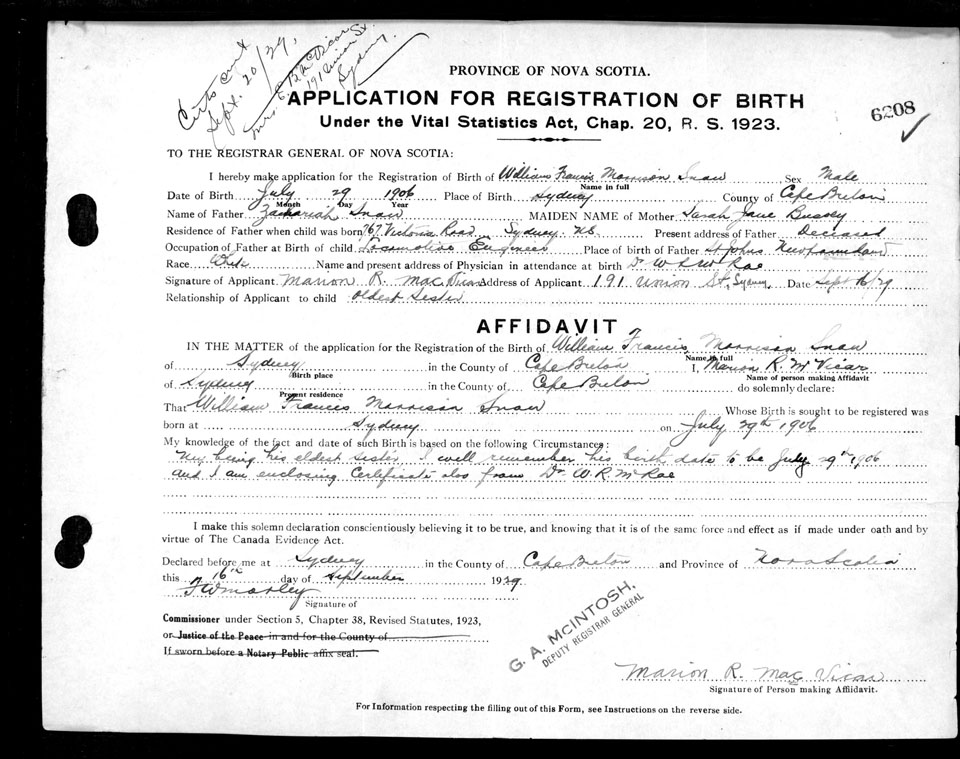 Certs sent
Sept. 20/29,
Mrs
191 Union St.
Sydney.
PROVINCE OF NOVA SCOTIA.
APPLICATION FOR REGISTRATION OF BIRTH
Under the Vital Statistics Act, Chap. 20, R. S. 1923.
6208
TO THE REGISTRAR GENERAL OF NOVA SCOTIA:
I hereby make application for the Registration of Birth of William Francis Morrison Snow Sex Male
Name in full
Date of Birth July 29 1906 Place of Birth Sydney County of Cape Breton
Month Day Year
Name of Father Zachariah Snow MAIDEN NAME of Mother Sarah Jane Bussey
Residence of Father when child was born 767 Victoria Road Sydney NS Present address of Father Deceased
Occupation of Father at Birth of child Locomotive Engineer Place of birth of Father St Johns Newfoundland
Race White Name and present address of Physician in attendance at birth Dr W R McRae
Signature of Applicant Marion R. MacVicar Address of Applicant 191 Union St, Sydney Date Sept 16/29
Relationship of Applicant to child oldest sister
AFFIDAVIT
IN THE MATTER of the application for the Registration of the Birth of William Francis Morrison Snow
Name in full
of Sydney in the County of Cape Breton I, Marion R. McVicar
Birth place Name of person making Affidavit
of Sydney in the County of Cape Breton do solemnly declare:
Present residence
That William Francis Morrison Snow Whose Birth is sought to be registered was
born at Sydney on July 29th 1906
My knowledge of the fact and date of such Birth is based on the following Circumstances:
My being his eldest sister I well remember his birth date to be July 29th 1906
and I am enclosing Certificate also from Dr W.R. McRae
I make this solemn declaration conscientiously believing it to be true, and knowing that it is of the same force and effect as if made under oath and by
virtue of The Canada Evidence Act.
Declared before me at Sydney in the County of Cape Breton and Province of Nova Scotia
this 16th day of September 1929
Signature of
Commissioner under Section 5, Chapter 38, Revised Statutes, 1923,
or Justice of the Peace in and for the County of
If sworn before a Notary Public affix seal.
G. A. McINTOSH,
DEPUTY REGISTRAR GENERAL
Marion R. MacVicar
Signature of Person making Affidavit.
For Information respecting the filling out of this Form, see Instructions on the reverse side.